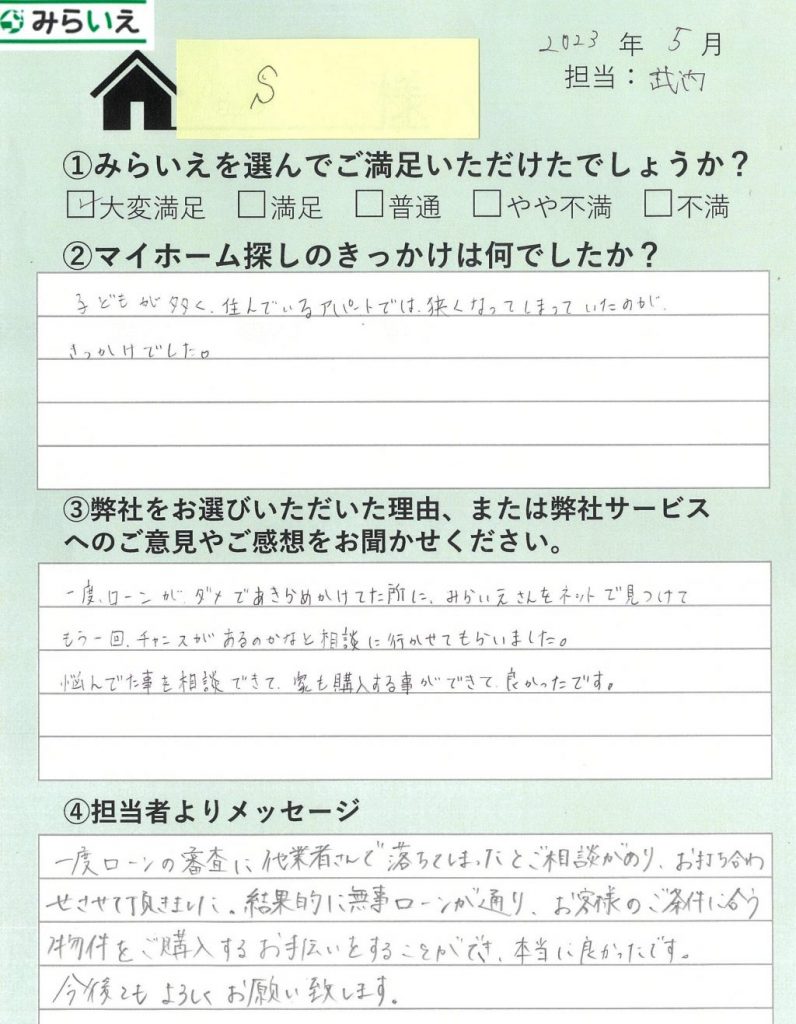 みらいえ
2023年5月
担当：武内
S
①みらいえを選んでご満足いただけたでしょうか？
☑大変満足 □満足 □普通 □やや不満 □不満
②マイホーム探しのきっかけは何でしたか？
子どもが多く、住んでいるアパートでは、狭くなってしまっていたのが、
きっかけでした。
③弊社をお選びいただいた理由、または弊社サービス
へのご意見やご感想をお聞かせください。
一度、ローンが、ダメであきらめかけてた所に、みらいえさんをネットで見つけて
もう一回、チャンスがあるのかなと相談に行かせてもらいました。
悩んでた事も相談できて、家も購入する事ができて、良かったです。
④担当者よりメッセージ
一度ローンの審査に他業者さんで落ちてしまったとご相談があり、お打ち合わ
せさせて頂きました。結果的に無事ローンが通り、お客様のご条件に合う
物件をご購入するお手伝いをすることができ、本当に良かったです。
今後ともよろしくお願い致します。